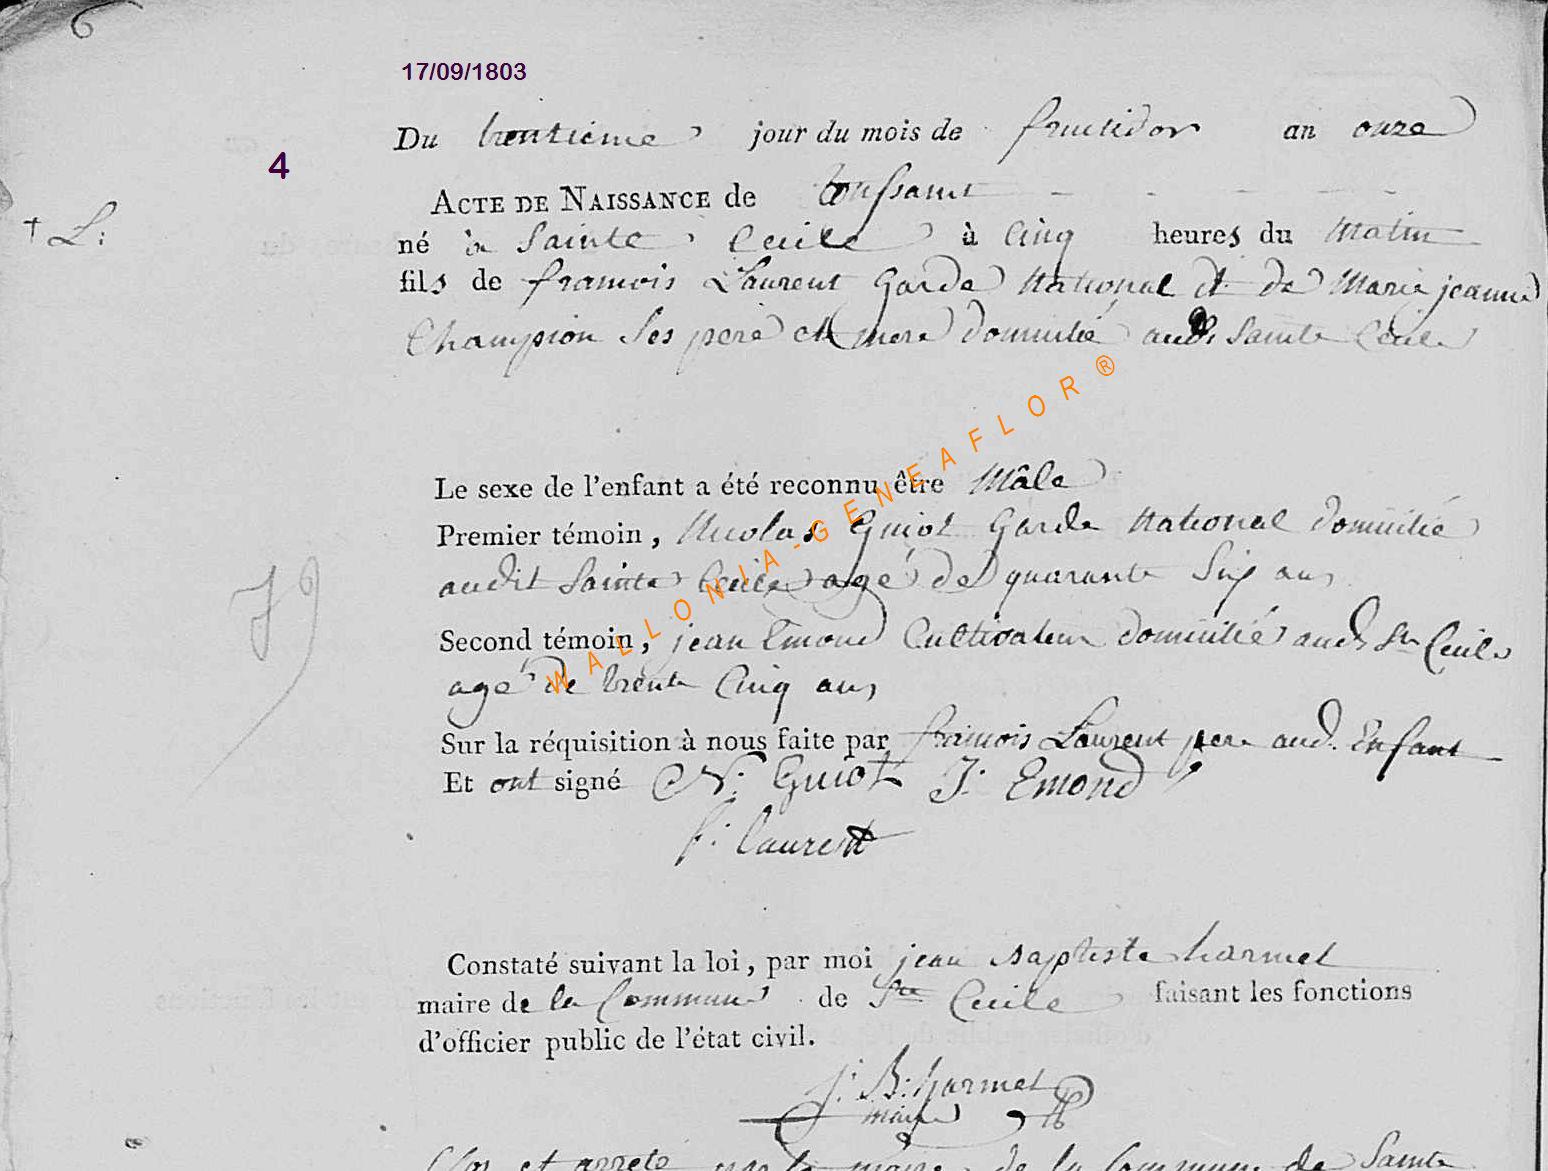 6
17/09/1803
Du trentieme jour du mois de fructidor an onze
4
ACTE DE NAISSANCE de toussaint
† L:
né à Sainte Cecile à Cinq heures du Matin
fils de francois Laurent Garde National et de Marie jeanne
Champion Ses pere et mere domicilié aud. Sainte Cecile
Le sexe de l'enfant a été reconnu être Mâle
Premier témoin, Nicolas Guiot Garde National domicilié
audit Sainte Cecile agé de quarante Six ans
Second témoin, jean Emond Cultivateur domicilié aud. Ste Cecile
agé de trente Cinq ans
Sur la réquisition à nous faite par francois Laurent pere aud. Enfant
Et ont signé N: Guiot J: Emond
f: laurent
WALLONIA-GENEAFLOR®
Constaté suivant la loi, par moi jean baptiste harmel
maire de la Commune de Ste Cecile faisant les fonctions
d'officier public de l'état civil.
J: B: harmel
maire
Clos et arrêté par le maire de la Commune de Sainte